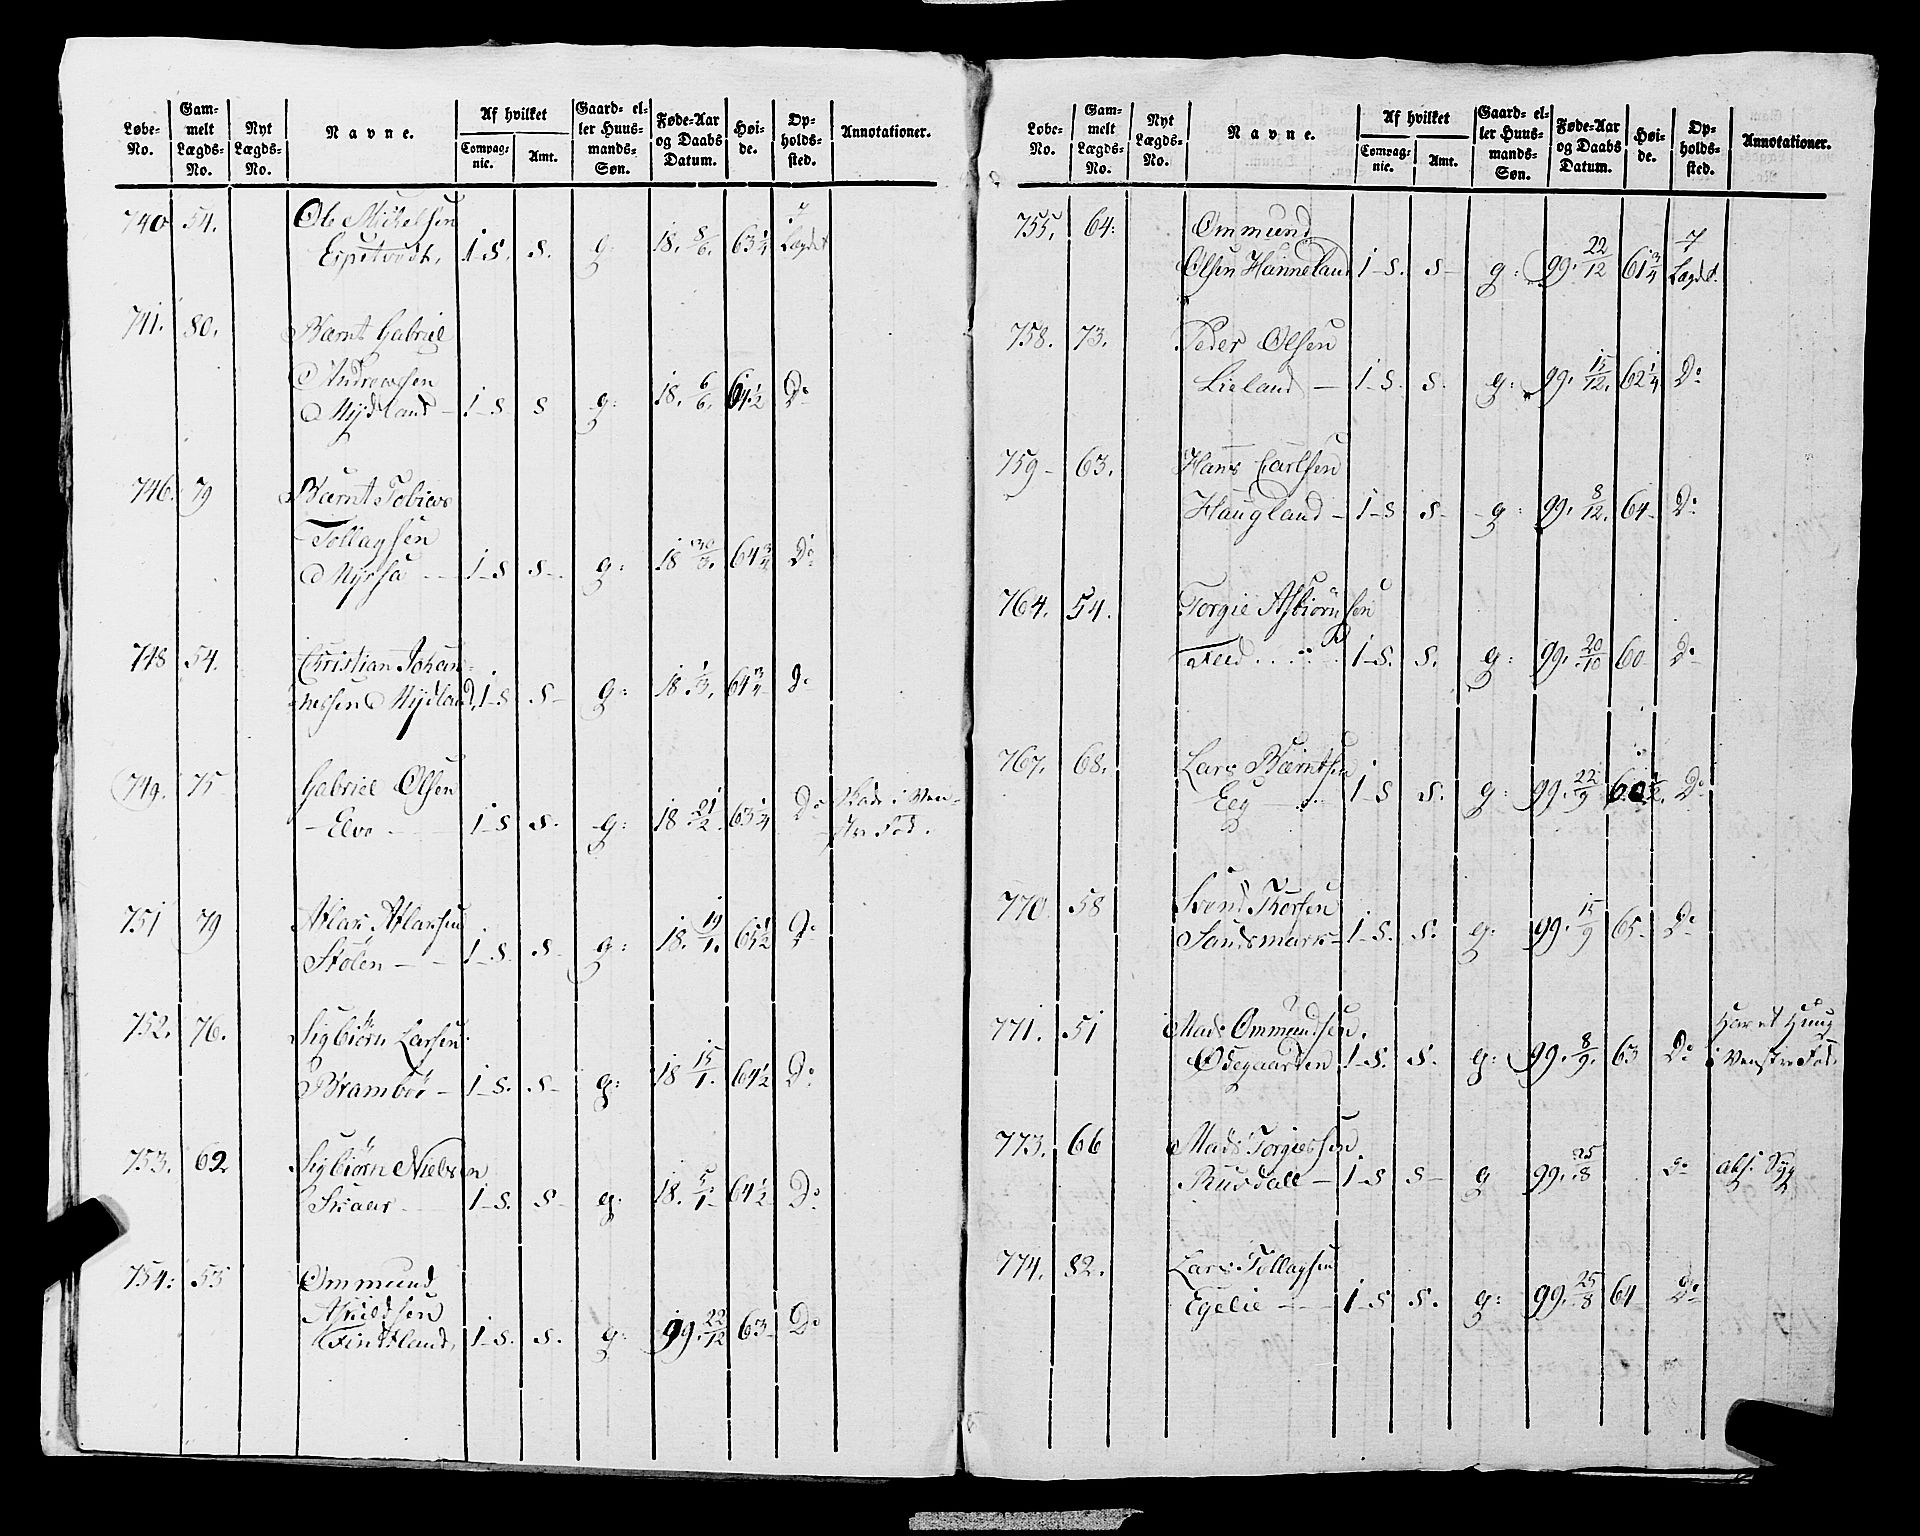 Løbe-No. Gammelt Lægds-No. Nyt Lægds-No. Navne. Af hvilket Compagnie. Amt. Gaard- eller Huusmands-Søn. Føde-Aar og Daabs Datum. Høide. Opholdssted. Annotationer.
740 54. Ole Michelsen I
1 S. S. g: 18. 8/6. 63 1/4 Lægdet
741. 80. Bernt Gabriel
Andreassen
Mydland 1 S S g: 18. 6/6. 64 1/2 Do
746. 79 Bernt Tobias
Tollagsen
1 S S g: 18 30/3. 64 3/4 Do
748 54. Christian Johan-
nessen Mydland, 1 S S g: 18. 1/3. 64 3/4 Do
749. 75 Gabriel Olsen Skade i Ven-
Elve 1 S S. g: 18 21/2. 63 1/4 Do stre Fod.
751 79 Atlak Atlaksen
Stølen 1 S. S. g: 18. 19/1. 65 1/2 Do
752. 76. Sigbiørn Larsen
1 S. S g: 18 15/1. 64 1/2 Do
753. 62 Sigbiørn Nielsen
Skaar 1 S. S g: 18. 5/1 64 1/2 Do
754: 53 Ommund
Askildsen
Fintland, 1 S. S. g: 99. 22/12 63 Do
Løbe-No. Gammelt Lægds-No. Nyt Lægds-No. Navne. Af hvilket Compagnie. Amt. Gaard- eller Huusmands-Søn. Føde-Aar og Daabs Datum. Høide. Opholdssted. Annotationer.
755. 64: Ommund I
Olsen Hanneland 1 S. S g: 99. 22/12 61 3/4 Lægdet.
758. 73. Peder Olsen
Lieland 1 S. S. g: 99. 15/12. 62 1/4 Do
759 63. Hans Carlsen
Haugland 1 S S g: 99. 8/12. 64 Do
764. 54. Torgie Asbiørnsen
1 S. S. g: 99. 20/10 60 Do
767. 68. Lars Berntsen
Eeg 1 S S. g: 99. 22/9 60 1/2. Do
770 58 Svend Thorsen
Sandsmark 1 S. S. g: 99. 15/9 65 Do
771. 51 Mads Ommundsen Har et Hug
Ødegaarden 1 S. S. g: 99. 8/9. 63 Do i Venstre Fod.
773. 66 Mads Torgiessen
Rusdall 1 S S g 99. 25/8 Do abs: Syg
774. 82. Lars Tollagsen
Egelie 1 S S. g: 99. 25/8 64 Do